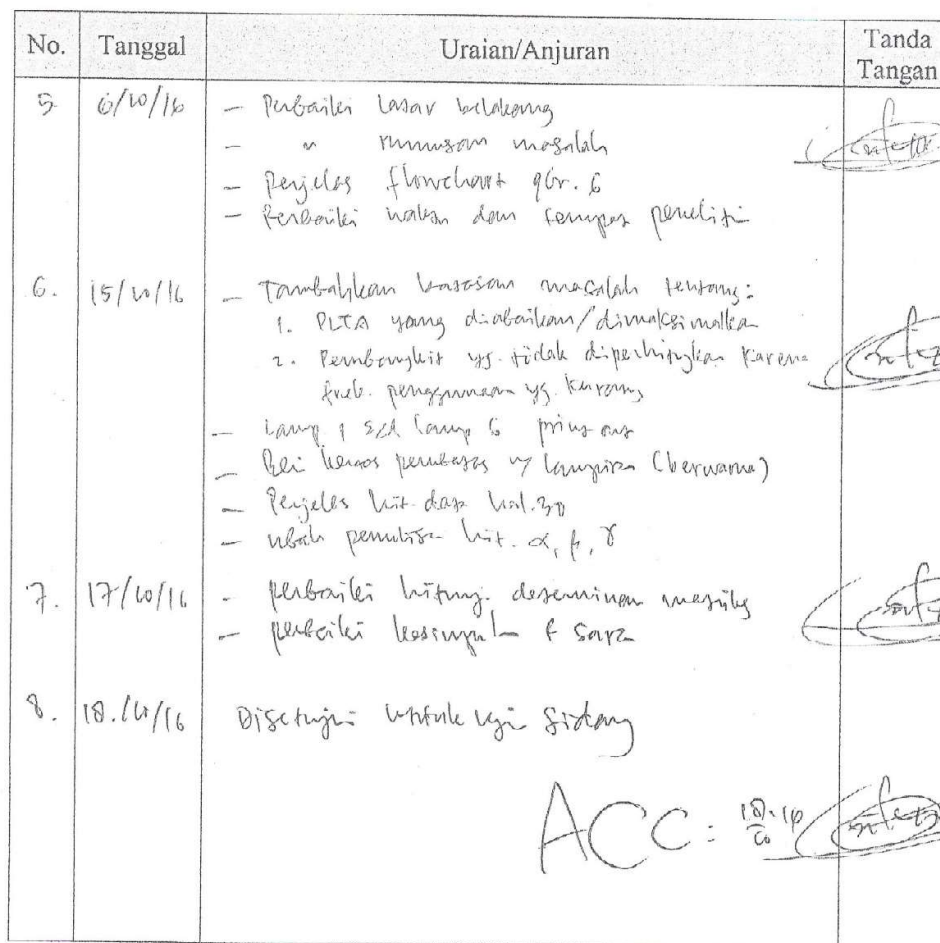 No. Tanggal Uraian/Anjuran Tanda Tangan
5 6/10/16 - Perbaiki latar belakang
- " rumusan masalah
- Penjelas flowchart gbr. 6
- Perbaiki waktu dan tempat penelitian
6. 15/10/16 - Tambahkan batasan masalah tentang:
1. PLTA yang diabaikan/dimaksimalkan
2. Pembangkit yg. tidak diperhitungkan karena
frek. penggunaan yg. kurang
- Lamp 1 s/d lamp 6 print out
- Beri kertas pembatas u/ lampiran (berwarna)
- Penjelas hit. data hal. 30
- Ubah penulisan hit. α, β, γ
7. 17/10/16 - Perbaiki hitung. determinan matriks
- Perbaiki kesimpulan & saran
8. 18/10/16 Disetujui untuk uji sidang
ACC: